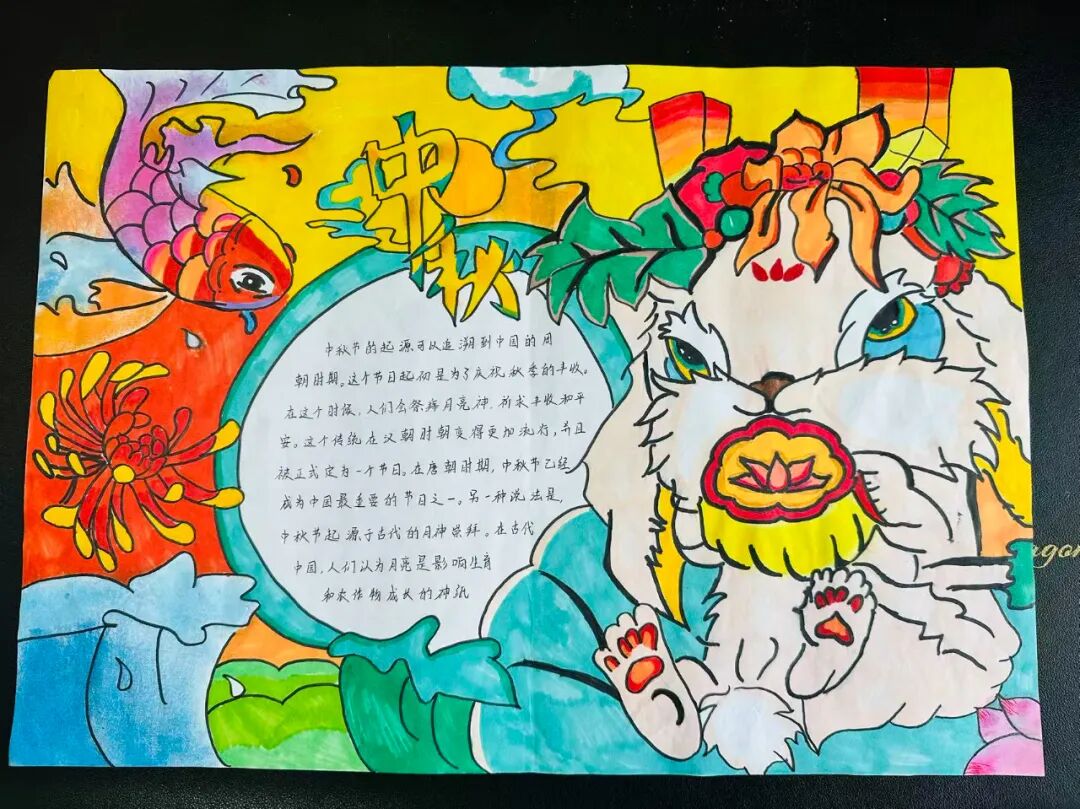 中秋
中秋节的起源可以追溯到中国的周
朝时期。这个节日起初是为了庆祝秋季的丰收。
在这个时候,人们会祭拜月亮神,祈求丰收和平
安。这个传统在汉朝时期变得更加流行,并且
被正式定为一个节日。在唐朝时期,中秋节已经
成为中国最重要的节日之一。另一种说法是,
中秋节起源于古代的月神崇拜。在古代
中国,人们认为月亮是影响生育
和农作物成长的神祇